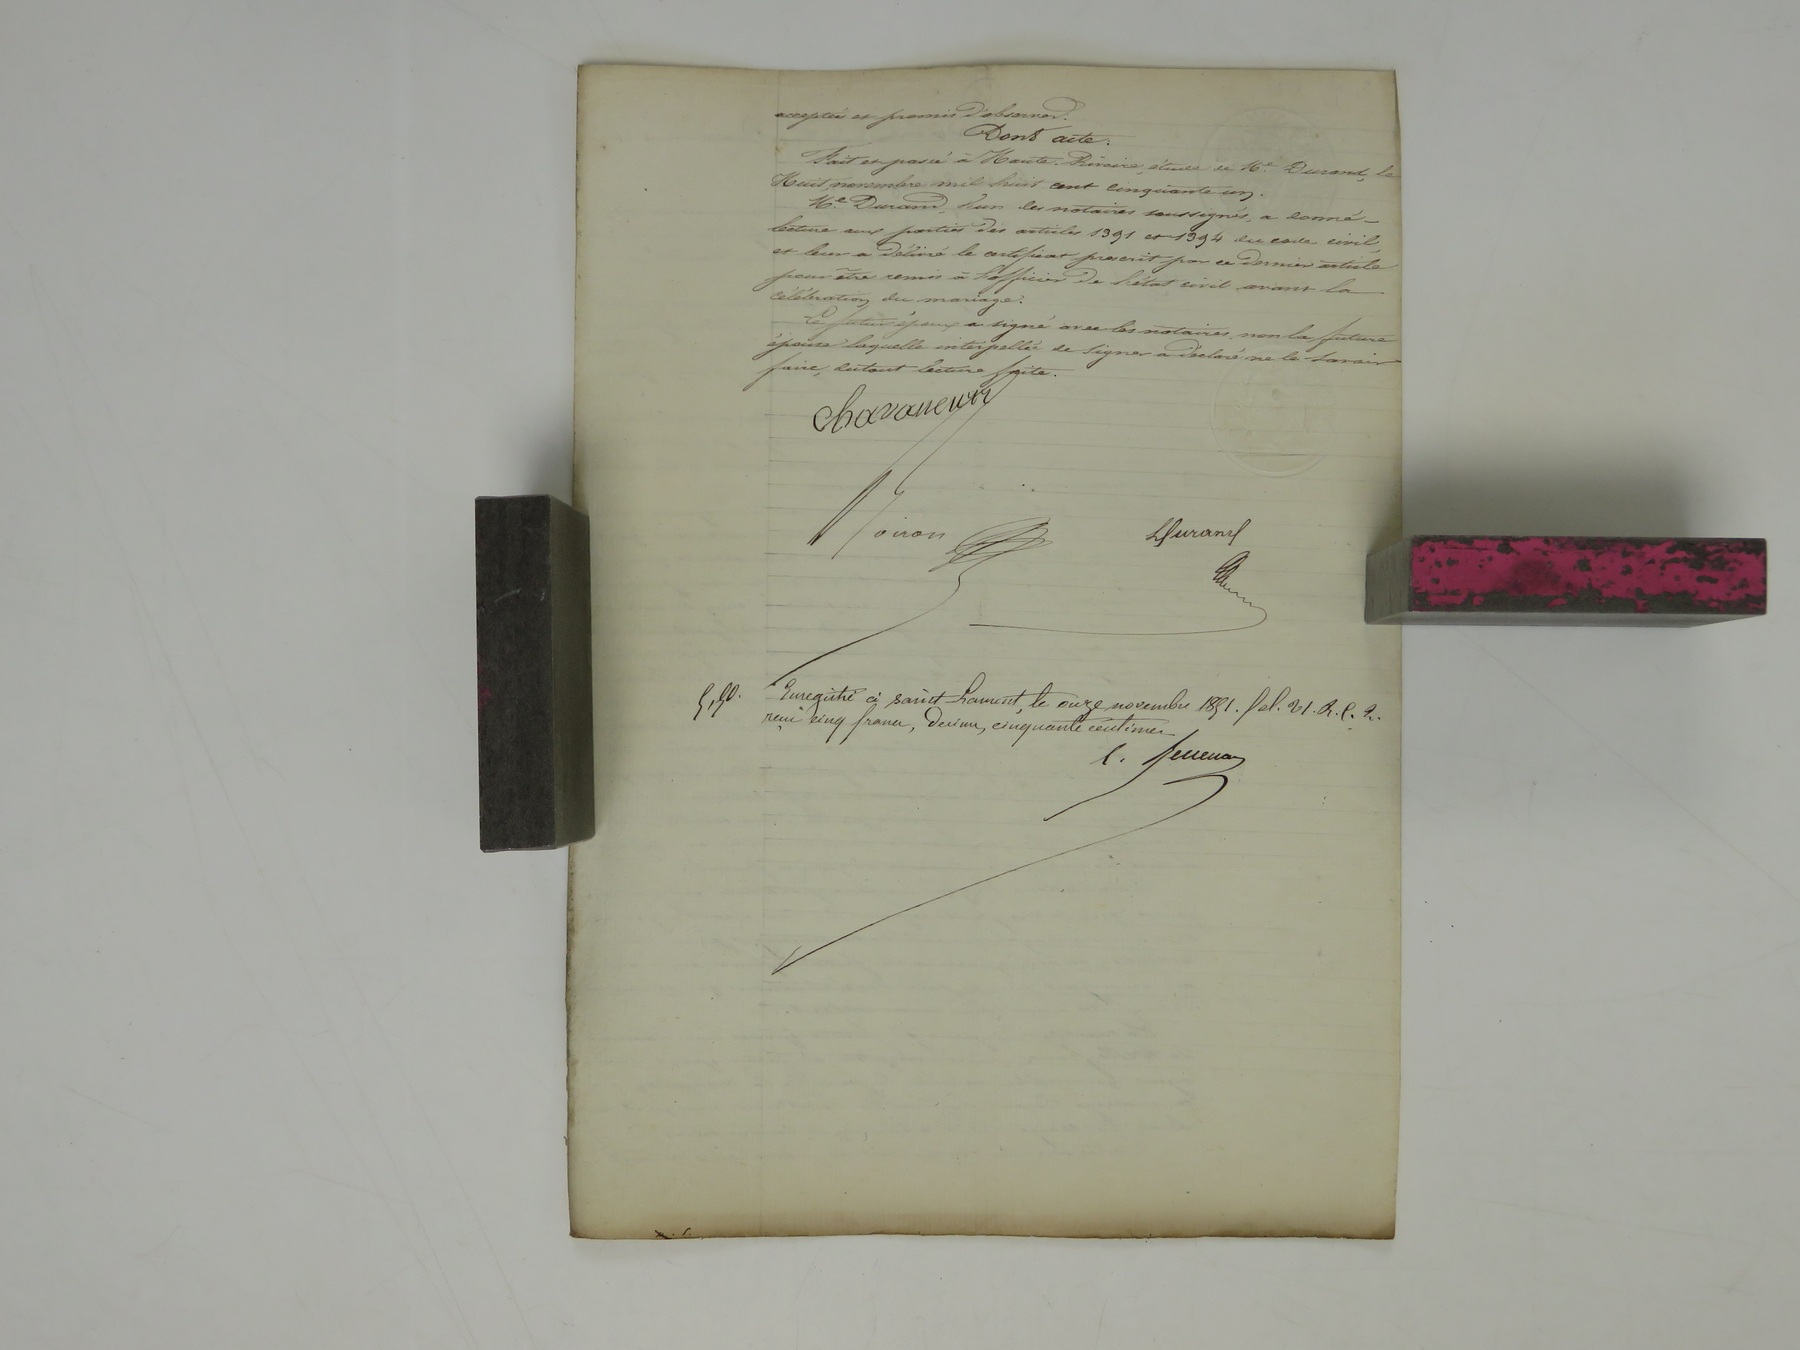 acceptés et promis d'observer.
Dont acte.
Fait et passé à Haute-Rivoire, étude de Me. Durand, le
Huit novembre mil huit cent cinquante un.
Me. Durand, l'un des notaires soussignés, a donné
lecture aux parties des articles 1391 et 1394 du code civil,
et leur a délivré le certificat prescrit par ce dernier article
pour être remis à l'officier de l'état civil avant la
célébration du mariage.
Le futur époux a signé avec les notaires, non la future
épouse laquelle interpellée de signer a déclaré ne le savoir
faire, du tout lecture faite.
Chavaneux
Noiron
Durand
5,50. Enregistré à saint Laurent, le onze novembre 1851. fol. 21. R. C. 2.
reçu cinq francs, decime, cinquante centimes